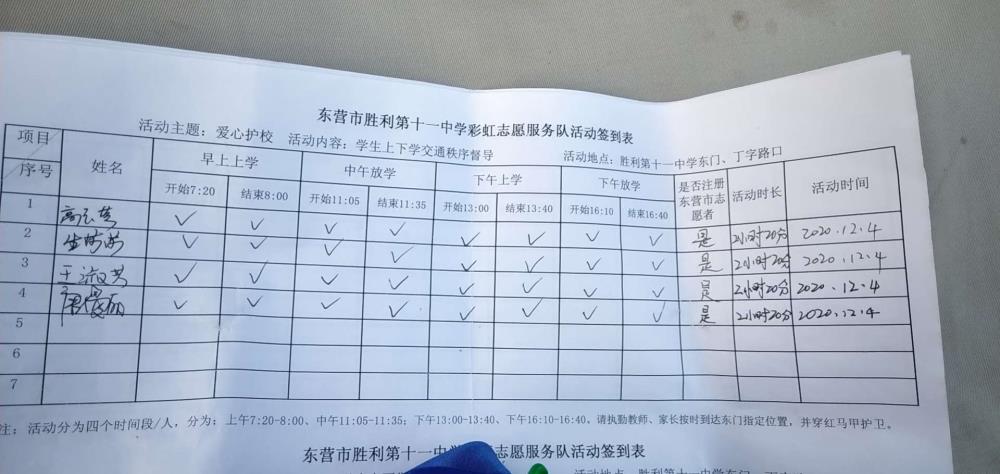 东营市胜利第十一中学彩虹志愿服务队活动签到表
活动主题：爱心护校 活动内容：学生上下学交通秩序督导 活动地点：胜利第十一中学东门、丁字路口
项目 序号 姓名 早上上学 中午放学 下午上学 下午放学 是否注册东营市志愿者 活动时长 活动时间
开始7:20 结束8:00 开始11:05 结束11:35 开始13:00 结束13:40 开始16:10 结束16:40
1 ✓ ✓ ✓ ✓ ✓ ✓ ✓ ✓ 是 2小时20分 2020.12.4
2 ✓ ✓ ✓ ✓ ✓ ✓ ✓ ✓ 是 2小时20分 2020.12.4
3 王淑芳 ✓ ✓ ✓ ✓ ✓ ✓ ✓ ✓ 是 2小时20分 2020.12.4
4 ✓ ✓ ✓ ✓ ✓ ✓ ✓ ✓ 是 2小时20分 2020.12.4
5
6
7
注：活动分为四个时间段/人，分为：上午7:20-8:00、中午11:05-11:35；下午13:00-13:40、下午16:10-16:40。请执勤教师、家长按时到达东门指定位置，并穿红马甲护卫。
东营市胜利第十一中学 志愿服务队活动签到表
活动地点：胜利第十一中学东门